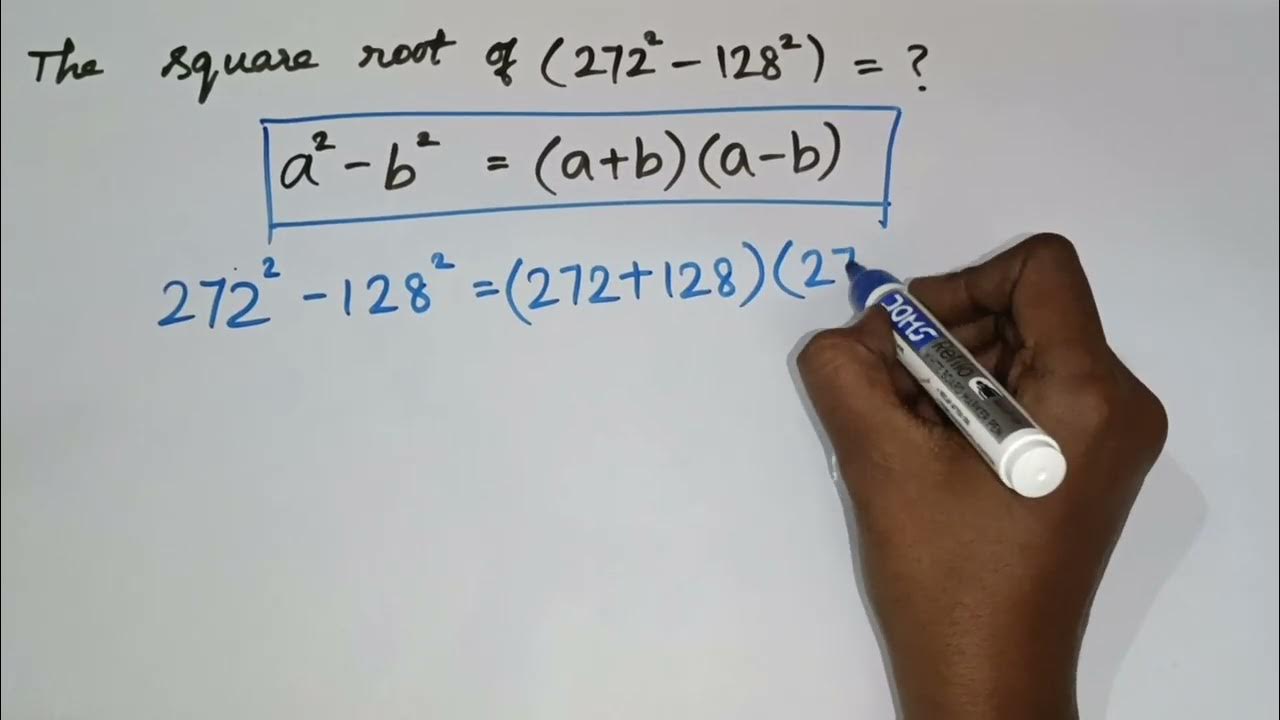 The square root of (272² - 128²) = ?
a² - b² = (a+b)(a-b)
272² - 128² = (272+128)(27
DOMS